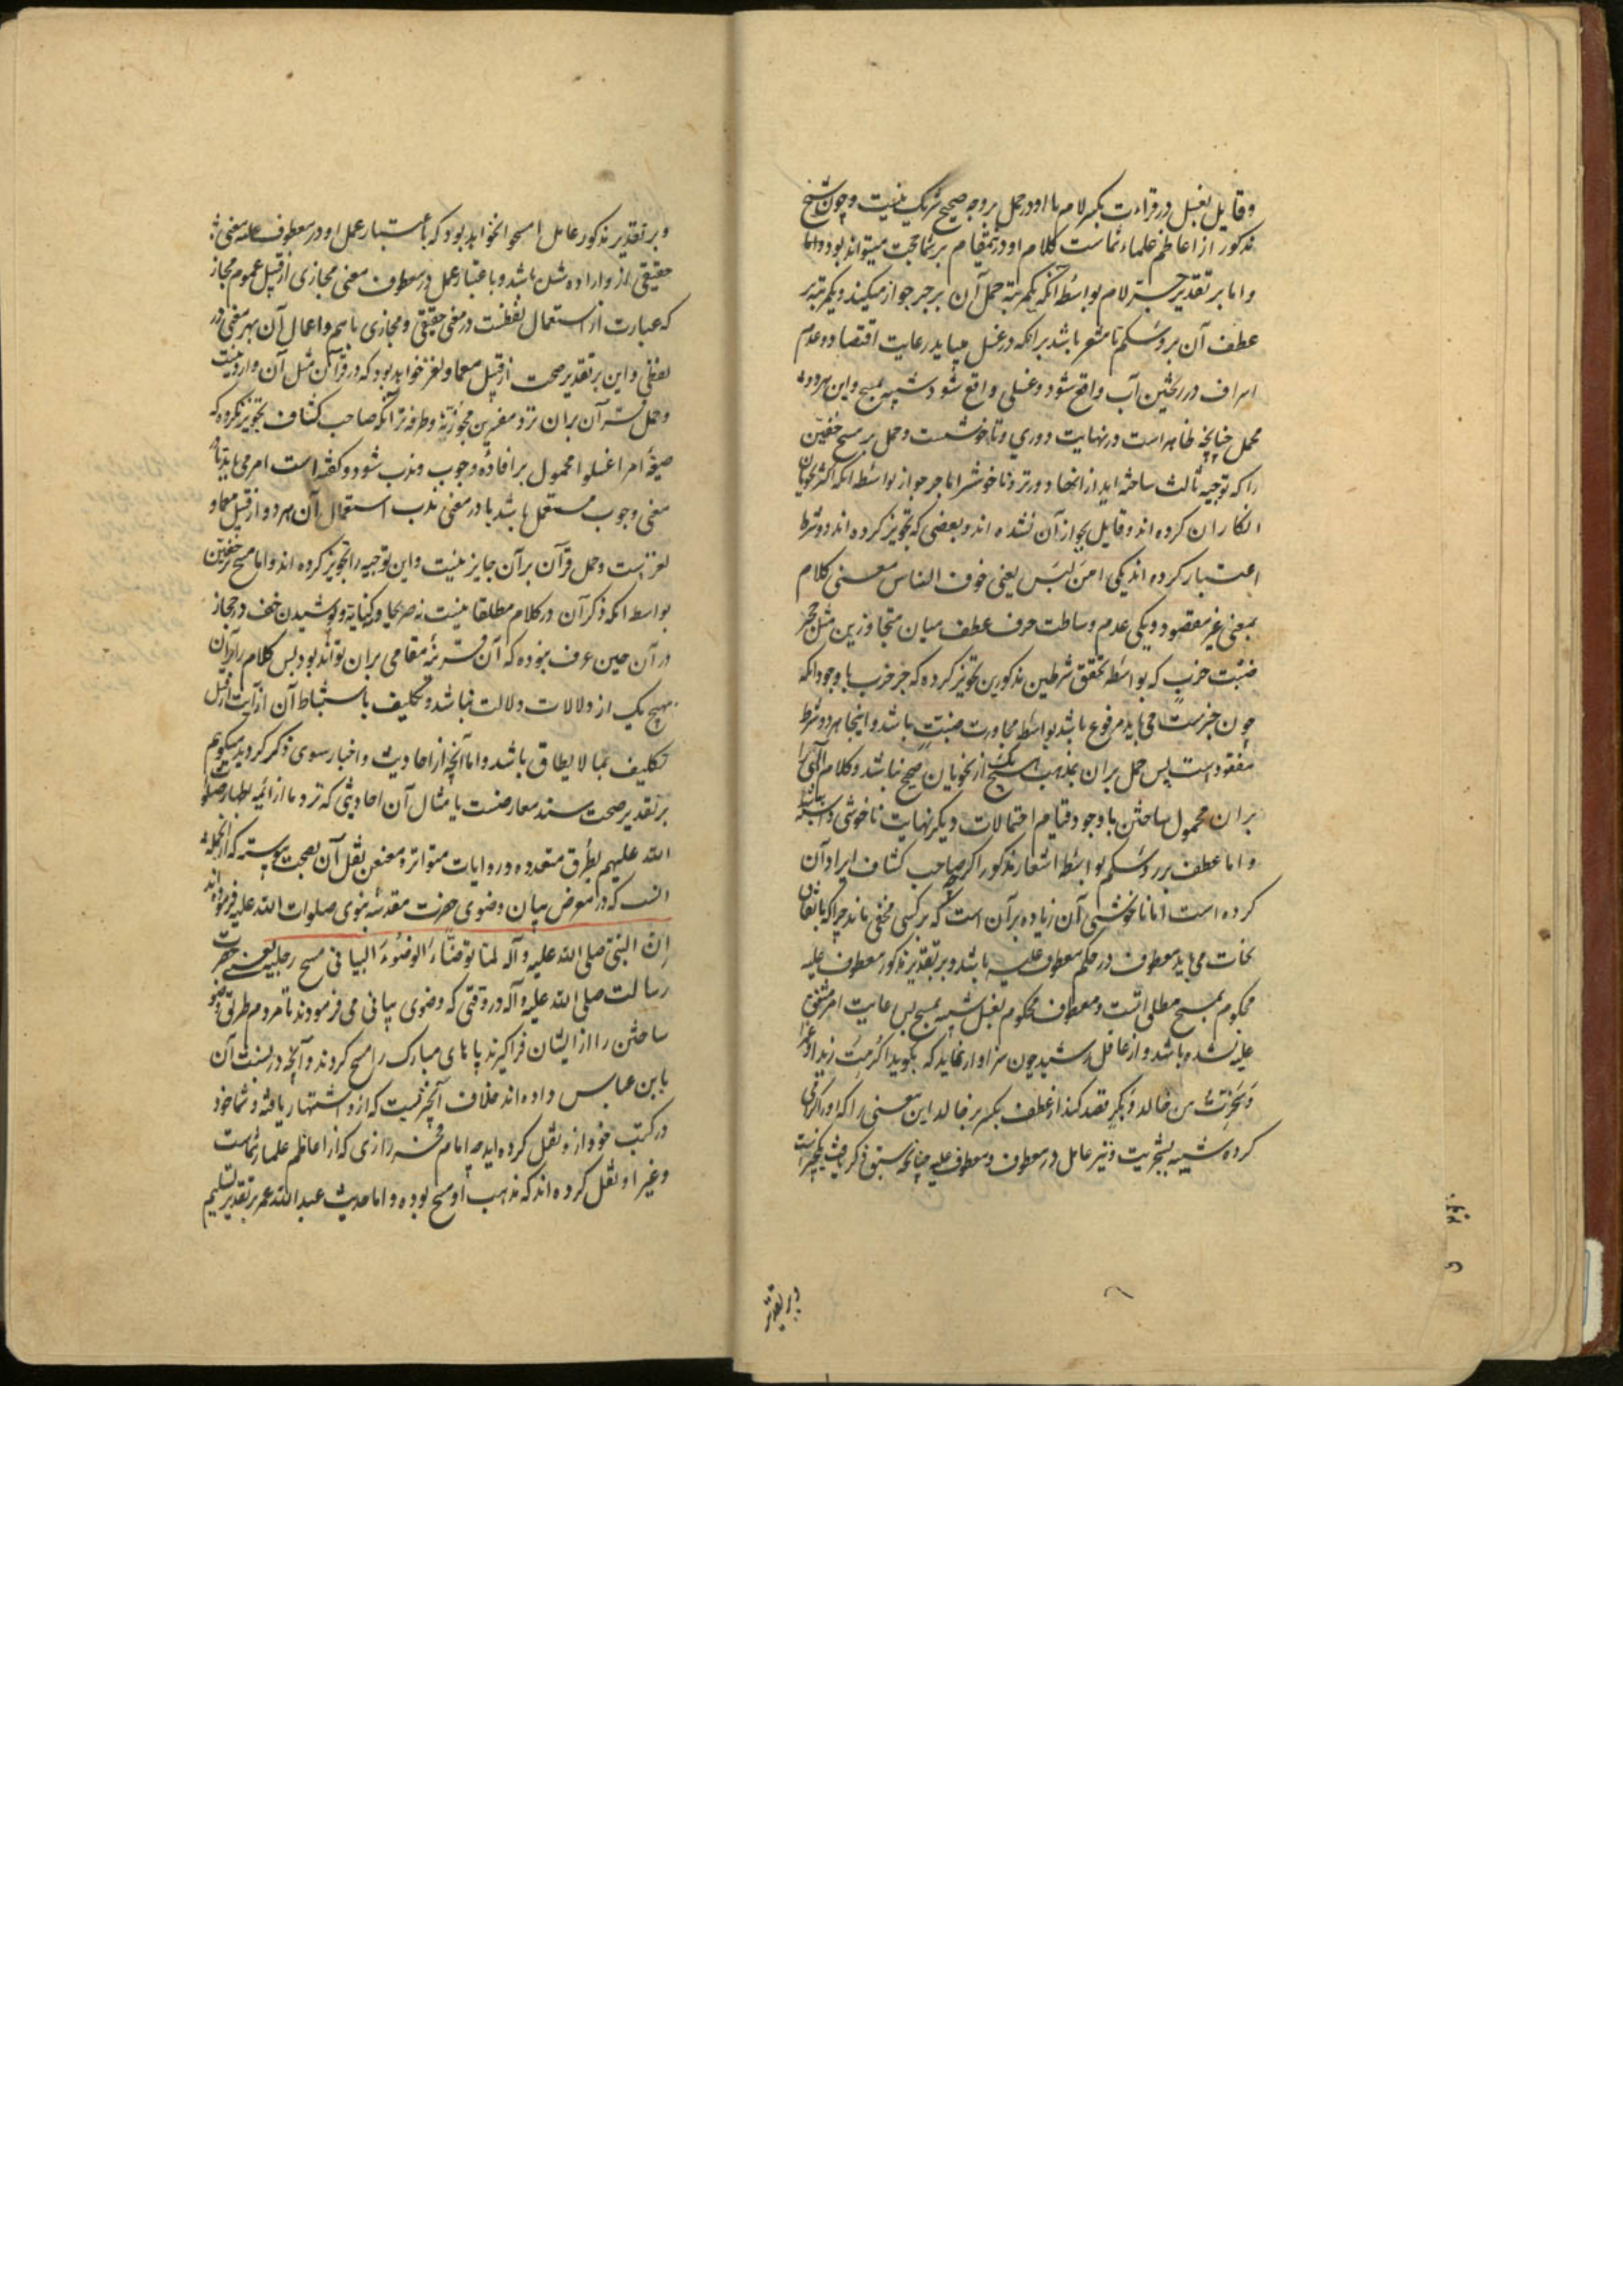 وقایل بغسل در قراءت بکسر لام با او در حمل بر وجه صحیح شریک نیست و چون شیخ
مذکور از اعاظم علماء شماست کلام او درین مقام بر شما حجت میتواند بود و اما
و اما بر تقدیر جر لام بواسطه آنکه یکمرتبه حمل آن بر جر جواز میکنید و یکمرتبه بر
عطف آن بر رؤسکم تا مشعر باشد بر آنکه در غسل میباید رعایت اقتصاد و عدم
اسراف در ریختن آب واقع شود و غسلی واقع شود شبیه بمسح و این هر دو
محمل چنانچه ظاهر است در نهایت دوری و ناخوشست و حمل بر مسح خفین
را که توجیه ثالث ساخته اید از آنها دورتر و ناخوشتر اما جر جواز بواسطه آنکه اکثر نحویان
انکار آن کرده اند و قایل بجواز آن نشده اند و بعضی که تجویز کرده اند دو شرط
اعتبار کرده اند یکی امن لبس یعنی خوف التباس معنی کلام
بمعنی غیر مقصود و یکی عدم وساطت حرف عطف میان متجاورین مثل جحر
ضب خرب که بواسطه تحقق شرطین مذکورین تجویز کرده که جر خرب با وجود آنکه
چون خبرست می باید مرفوع باشد بواسطه مجاورت ضب باشد و اینجا هر دو شرط
مفقود است پس حمل بر آن بمذهب هیچ یک از نحویان صحیح نباشد و کلام الهی را
بر آن محمول ساختن با وجود قیام احتمالات دیگر نهایت ناخوشی داشته باشد
و اما عطف بر رؤسکم بواسطه اشعار مذکور اگرچه صاحب کشاف ایراد آن
کرده است اما ناخوشی آن زیاده بر آن است که بر کسی مخفی ماند چرا که باتفاق
نحات می باید معطوف در حکم معطوف علیه باشد و بر تقدیر مذکور معطوف علیه
محکوم بمسح مطلق است و معطوف محکوم بغسل شبیه بمسح پس رعایت امر متفق
علیه نشده باشد و از عاقل رشید چون سزاوار نماید که بگوید اکرمت زیدا و عمرا
و سخرت من خالد و بکر قصد کند از عطف بکر بر خالد این معنی را که او را اکرامی
کرده شبیه بسخریت و نیز عامل در معطوف و معطوف علیه چنانچه سبق ذکر یافت یکچیز است
و بر تقدیر
و بر تقدیر مذکور عامل امسحوا خواهد بود که باعتبار عمل او در معطوف علیه معنی
حقیقی ازو اراده شده باشد و باعتبار عمل در معطوف معنی مجازی از قبیل عموم مجاز
که عبارت از استعمال لفظست در معنی حقیقی و مجازی باهم و اعمال آن بهر معنی در
لفظی و این بر تقدیر صحت از قبیل معما و لغز خواهد بود که در قرآن مثل آن وارد نیست
و حمل قرآن بران نزد مفسرین مجوز نه و طرفه تر آنکه صاحب کشاف تجویز نکرده که
صیغه امر اغسلوا محمول بر افاده وجوب و ندب شود و گفته است امر می باید تا در
معنی وجوب مستعمل باشد یا در معنی ندب استعمال آن بهر دو از قبیل معما و
لغز است و حمل قرآن بر آن جایز نیست و این توجیه را تجویز کرده اند و اما مسح خفین
بواسطه آنکه ذکر آن در کلام مطلقا نیست نه صریحا و نه کنایه و پوشیدن خف در حجاز
در آن حین عرف نبوده که آن قرینه مقامی بران تواند بود پس کلام را بر آن
بهیچ یک از دلالات دلالت نباشد و تکلیف باستنباط آن از آیت از قبیل
تکلیف بما لا یطاق باشد و اما آنچه از احادیث و اخبار سوی ذکر کردید میگویم
بر تقدیر صحت سند معارضست با مثال آن احادیثی که نزد ما از ائمه اطهار صلوات
الله علیهم بطرق متعدده و روایات متواتره معنعن نقل آن بصحت پیوسته که از آنجمله
انست که در معرض بیان وضوی حضرت مقدسه نبوی صلوات الله علیه فرموده اند
ان النبی صلی الله علیه و آله لما توضأ الوضوء البیانی مسح رجلیه یعنی حضرت
رسالت صلی الله علیه و آله در وقتی که وضوی بیانی می فرمودند تا مردم طریق وضو
ساختن را از ایشان فراگیرند پاهای مبارک را مسح کردند و آنچه در نسبت آن
بابن عباس داده اند خلاف آنچیزیست که ازو اشتهار یافته و شما خود
در کتب خود ازو نقل کرده اید چه امام فخر رازی که از اعاظم علماء شماست
و غیر او نقل کرده اند که مذهب او مسح بوده و اما حدیث عبد الله عمر بر تقدیر تسلیم